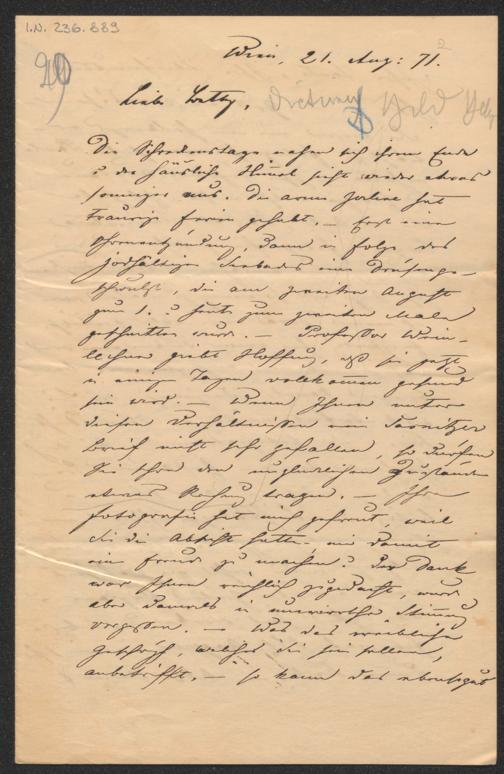 I.N. 236.889
29
Wien, 21. Aug: 71.
Liebe Betty,
Die Schreckenstage nahen sich ihrem Ende
u der häusliche Himmel sieht wieder etwas
sonniger aus. Die arme Julie hat
traurige Ferien gehabt. – Erst eine
Ohrenentzündung, dann in Folge des
jodhältigen Seebades eine Drüsenge-
schwulst, die am zweiten August
zum 1. u heute zum zweiten Male
geschnitten wurde. – Professor Wein-
lechner giebt Hoffnung, daß sie jetzt
in einigen Tagen vollkommen gesund
sein wird. – Wenn Ihnen unter
diesen Verhältnissen mein
Brief nicht sehr gefallen, so dürfen
Sie schon den unglücklichen Zuständen
etwas Rechnung tragen. – Ihre
Fotografie hat mich gefreut, weil
Sie die Absicht hatten mir damit
eine Freude zu machen. Der Dank
war Ihnen reichlich zugedacht, wurde
aber damals in Stimmung
vergessen. – Was das weibliche
Geschöpf, welches Sie sein sollen,
anbetrifft, – so kann das ebensogut